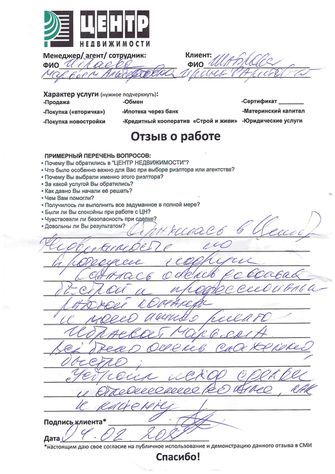 ЦЕНТР
НЕДВИЖИМОСТИ
Менеджер/ агент/ сотрудник:
ФИО
Клиент:
ФИО
Характер услуги (нужное подчеркнуть):
-Продажа -Обмен -Сертификат
-Покупка («вторичка») -Ипотека через банк -Материнский капитал
-Покупка новостройки -Кредитный кооператив «Строй и живи» -Юридические услуги
Отзыв о работе
ПРИМЕРНЫЙ ПЕРЕЧЕНЬ ВОПРОСОВ:
• Почему Вы обратились в "ЦЕНТР НЕДВИЖИМОСТИ"?
• Что было особенно важно для Вас при выборе риэлтора или агентства?
• Почему Вы выбрали именно этого риэлтора?
• За какой услугой Вы обратились?
• Как давно Вы начали её решать?
• Чем Вам помогли?
• Получилось ли выполнить все задуманное в полной мере?
• Были ли Вы спокойны при работе с ЦН?
• Чувствовали ли безопасность при сделке?
• Довольны ли Вы результатом?
Обратилась в Центр
Недвижимости по
продаже
осталась очень довольна
быстрой и
работой команды
и моего
Марьяма
Всё было очень слаженно
быстро,
Устроил исход сделки
и отношение как
к клиенту!
Подпись клиента*
Дата 04.02
*настоящим даю свое согласие на публичное использование и демонстрацию данного отзыва в СМИ
Спасибо!